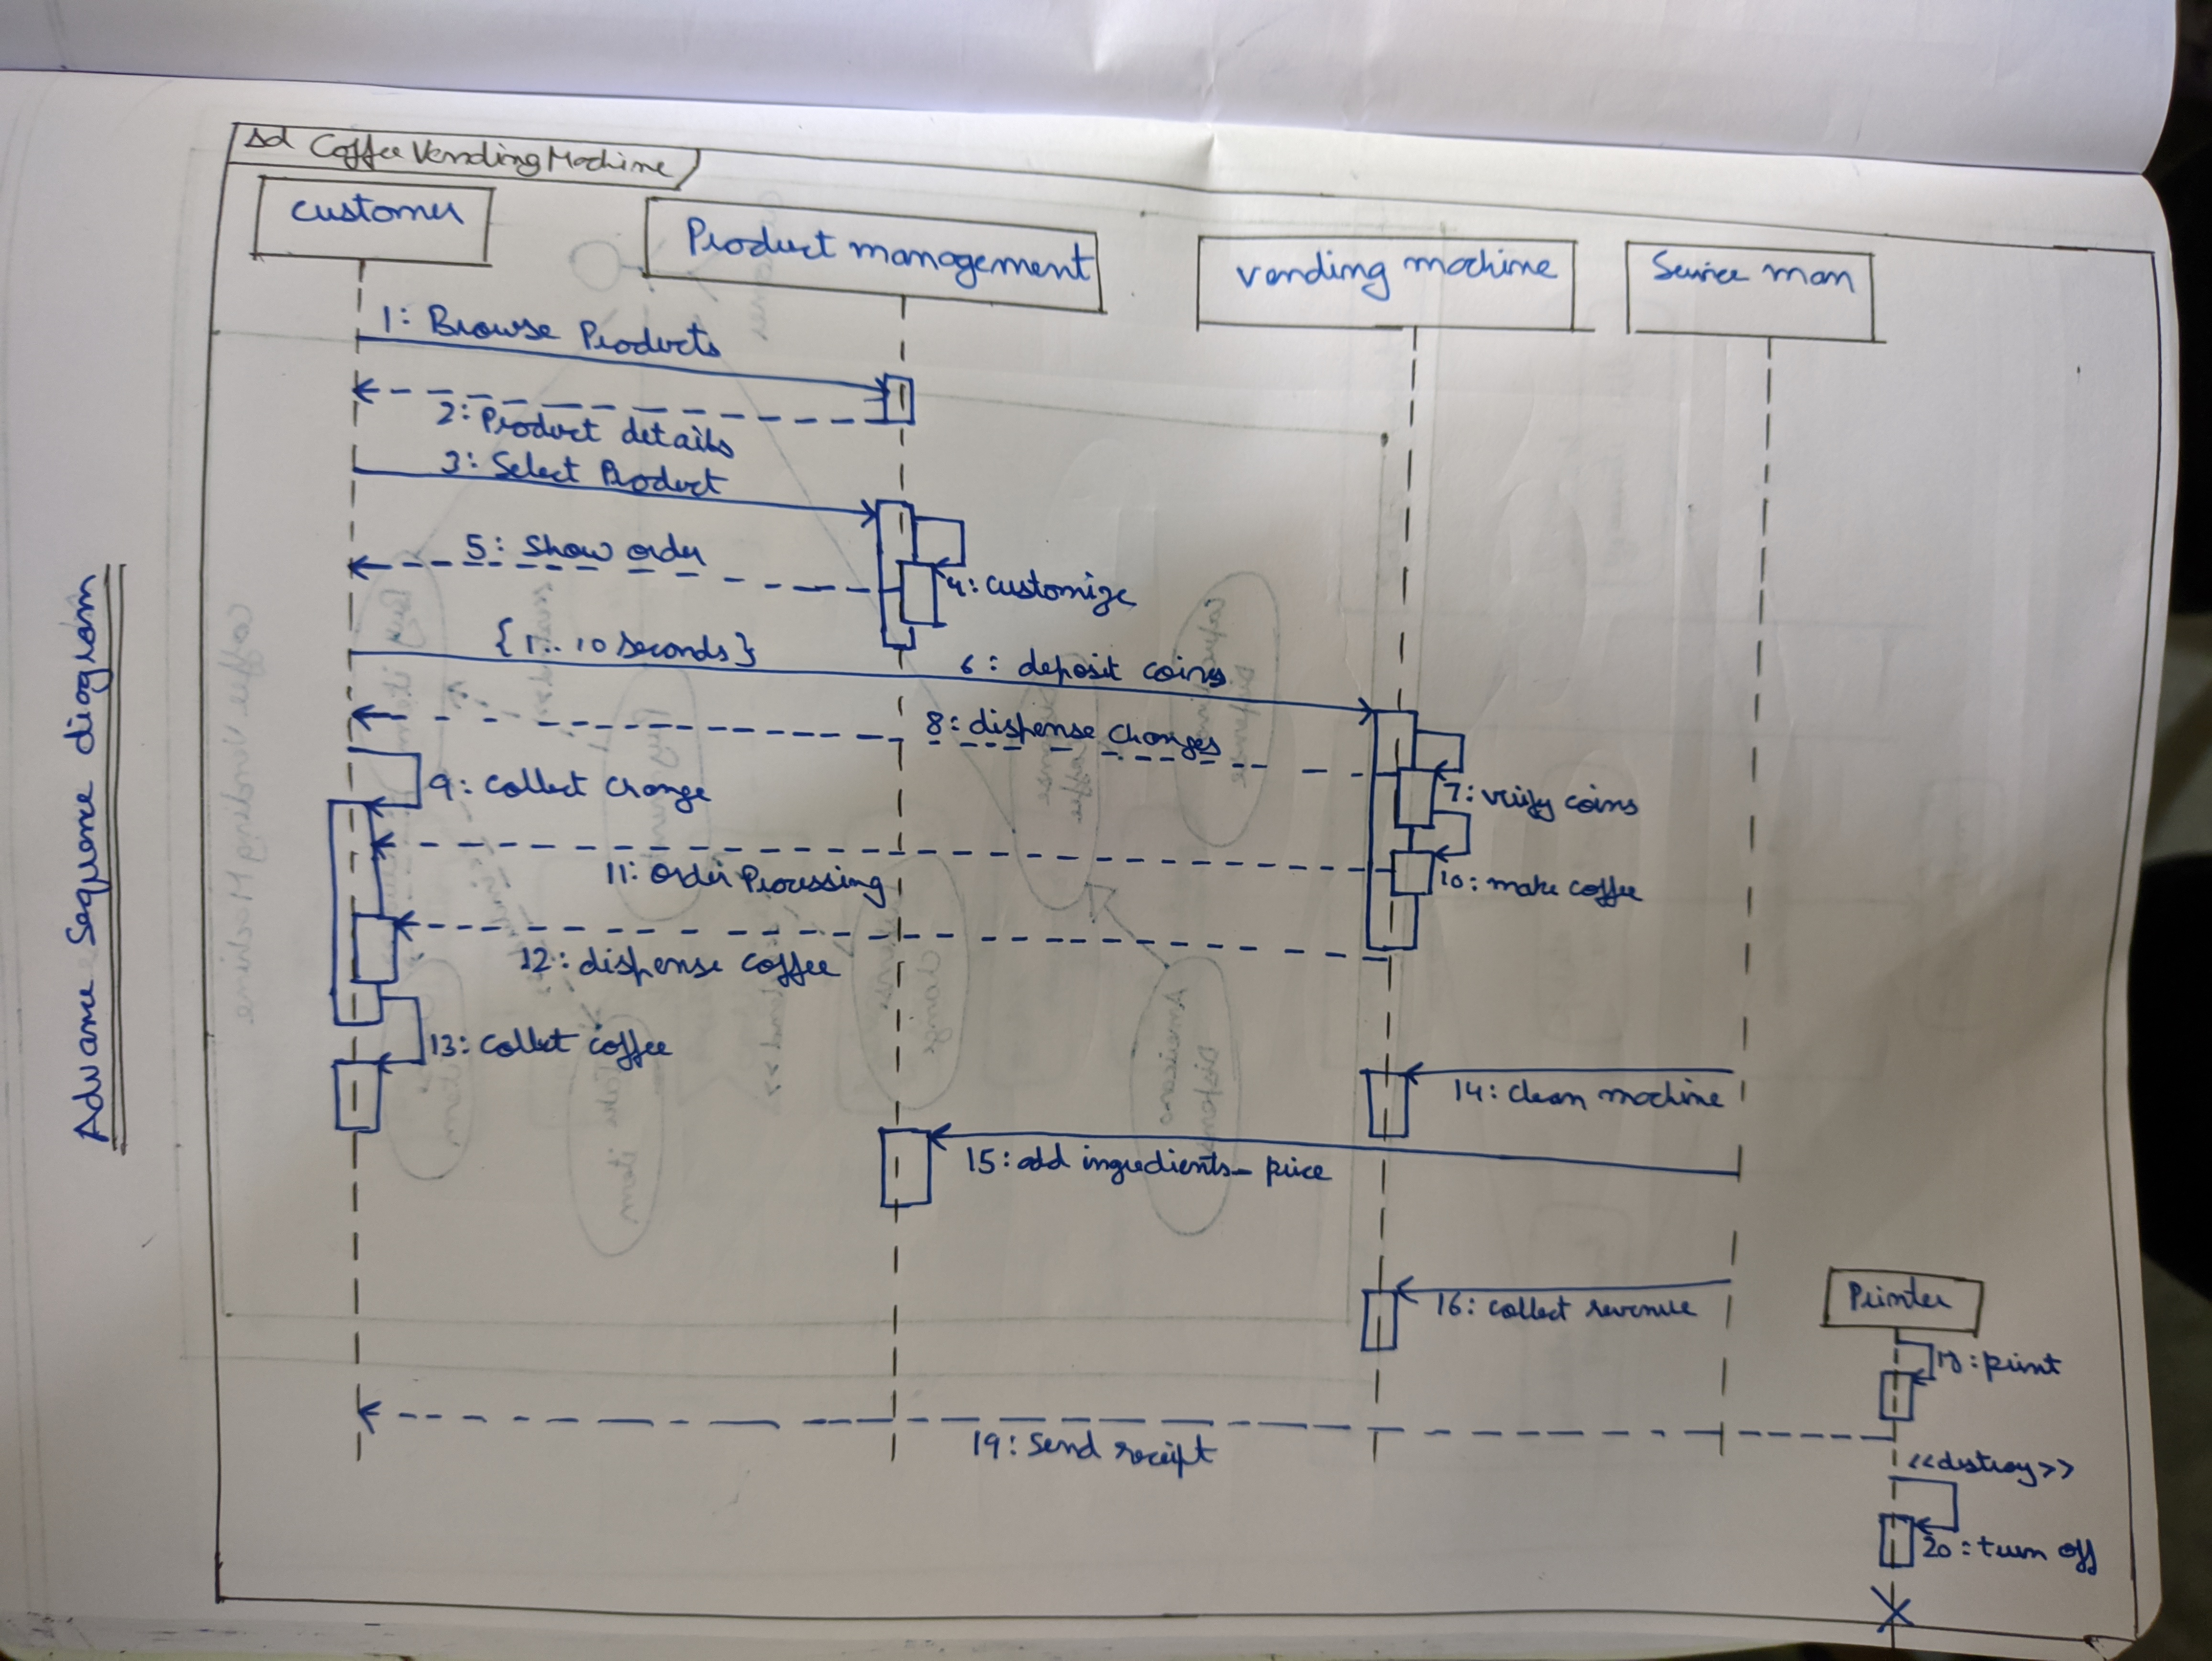 sd Coffee Vending Machine
customer
Product management
vending machine
Service man
1: Browse Products
2: Product details
3: Select Product
5: Show order
4: customize
{1..10 seconds}
6: deposit coins
8: dispense changes
9: collect change
7: verify coins
11: Order Processing
10: make coffee
12: dispense coffee
13: collect coffee
14: clean machine
15: add ingredients_ price
16: collect revenue
Printer
18: print
19: Send receipt
<<destroy>>
20: turn off
Advance Sequence diagram